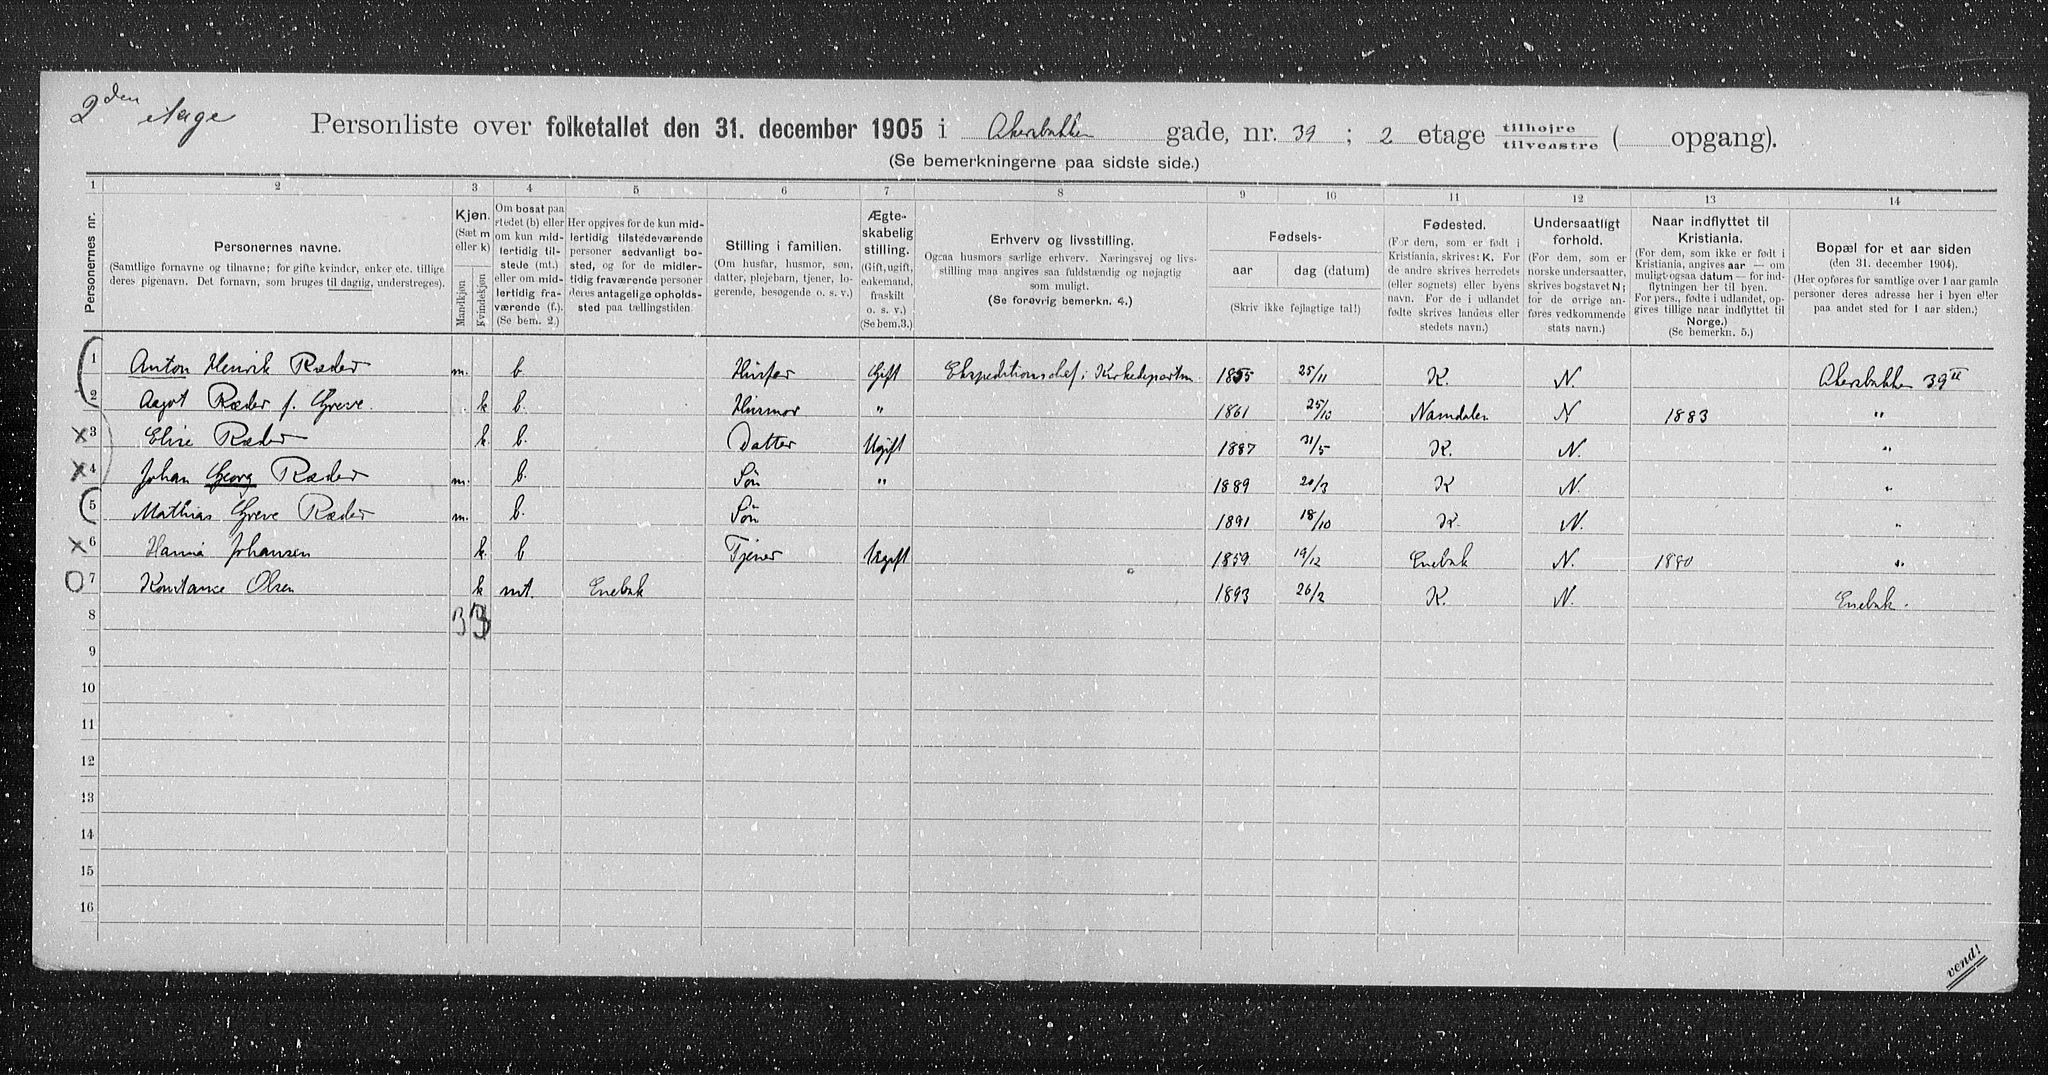 2den etage
Personliste over folketallet den 31. december 1905 i Akersbakken gade, nr. 39 ; 2 etage tilhøjre tilvenstre ( opgang).
(Se bemerkningerne paa sidste side.)
1 2 3 4 5 6 7 8 9 10 11 12 13 14
Personernes nr.
Personernes navne.
(Samtlige fornavne og tilnavne; for gifte kvinder, enker etc. tillige
deres pigenavn. Det fornavn, som bruges til daglig, understreges).
Kjøn.
(Sæt m
eller k)
Mandkjøn
Kvindekjøn
Om bosat paa
stedet (b) eller
om kun mid-
lertidig til-
stede (mt.)
eller om mid-
lertidig fra-
værende (f.)
(Se bem. 2.)
Her opgives for de kun mid-
lertidig tilstedeværende
personer sedvanlig bo-
sted, og for de midler-
tidig fraværende personer
deres antagelige opholds-
sted paa tællingstiden.
Stilling i familien.
(Om husfar, husmor, søn,
datter, plejebarn, tjener, lo-
gerende, besøgende o. s. v.)
Ægte-
skabelig
stilling.
(Gift, ugift,
enkemand,
fraskilt
o. s. v.)
(Se bem.3.)
Erhverv og livsstilling.
Ogsaa husmors særlige erhverv. Næringsvej og livs-
stilling maa angives saa fuldstændig og nøjagtig
som muligt.
(Se forøvrig bemerkn. 4.)
Fødsels-
aar dag (datum)
(Skriv ikke fejlagtige tal!)
Fødested.
(For dem, som er født i
Kristiania, skrives: K. For
de andre skrives herredets
(eller sognets) eller byens
navn. For de i udlandet
fødte skrives landets eller
stedets navn.)
Undersaatligt
forhold.
(For dem, som er
norske undersaatter,
skrives bogstavet N;
for de øvrige an-
føres vedkommende
stats navn.)
Naar indflyttet til
Kristiania.
(For dem, som ikke er født i
Kristiania, angives aar — om
muligt ogsaa datum — for ind-
flytningen her til byen.
For pers., fødte i udlandet, op-
gives tillige naar indflyttet til
Norge.)
(Se bemerkn. 5.)
Bopæl for et aar siden
(den 31. december 1904).
(Her opføres for samtlige over 1 aar gamle
personer deres adresse her i byen eller
paa andet sted for 1 aar siden.)
1 Anton Henrik Ræder m. b. Husfar Gift Ekspeditionschef i Kirkedepartm. 1855 25/11 K. N. Akersbakken 39 II
2 Aagot Ræder f. Greve. k b. Husmor " 1861 25/10 Namdalen N 1883 "
3 Elise Ræder k. b. Datter Ugift 1887 31/5 K. N. "
4 Johan Georg Ræder m. b. Søn " 1889 20/3 K N. "
5 Mathias Greve Ræder m. b. Søn 1891 18/10 K. N. "
6 Hanna Johansen k b Tjener Ugift 1859 19/12 Enebak N. 1880 "
7 Konstance Olsen k mt. Enebak 1893 26/2 K. N. Enebak.
8 3 3
9
10
11
12
13
14
15
16
vend!